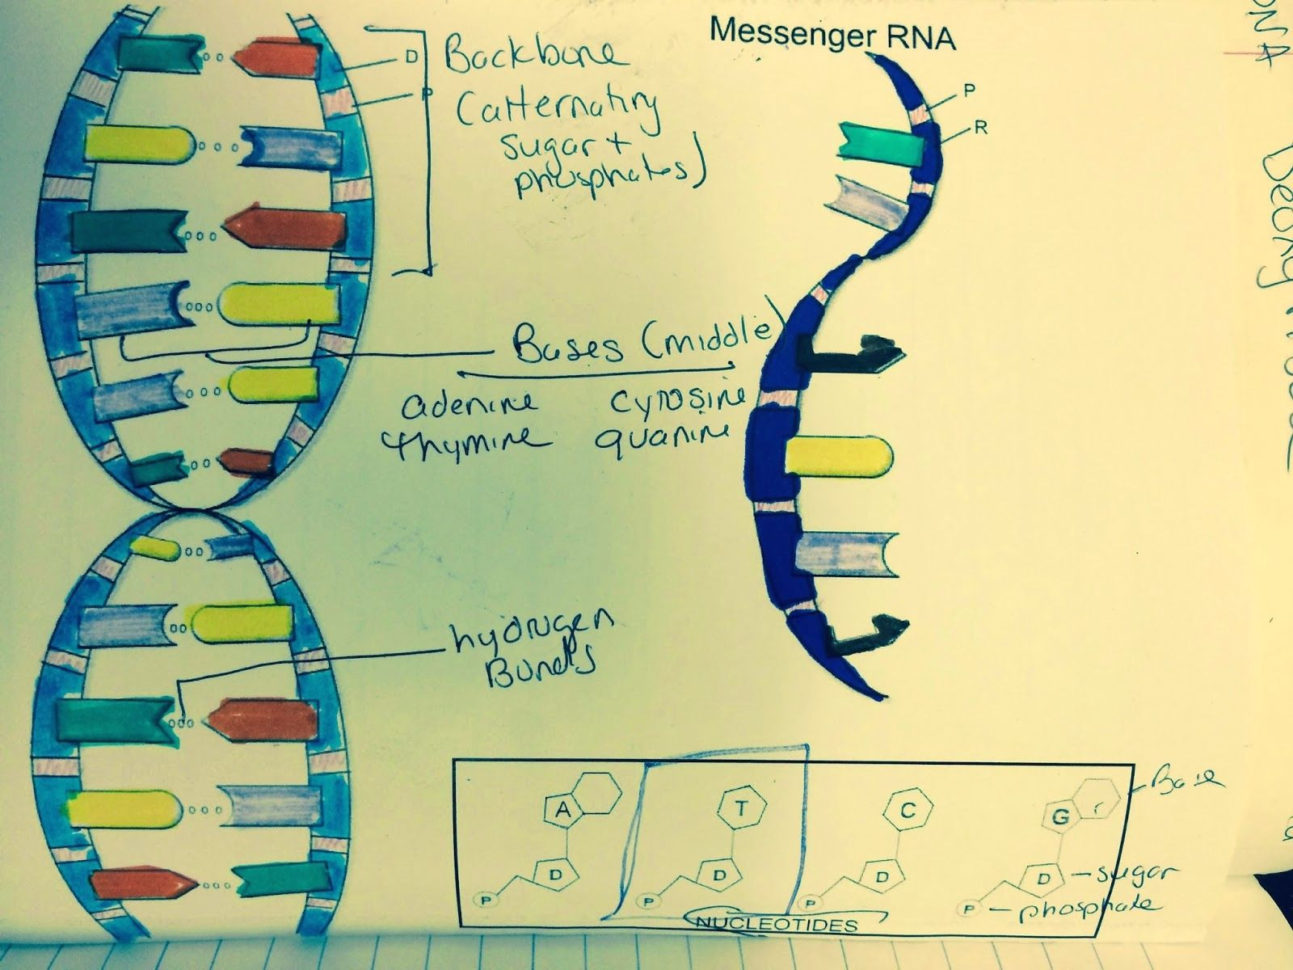 Messenger RNA
D
P
Backbone
(alternating
sugar +
phosphates)
P
R
Bases (middle)
adenine cytosine
thymine guanine
hydrogen
Bonds
A
T
C
G
Base
D
D
D
D
sugar
P
P
P
P
phosphate
NUCLEOTIDES